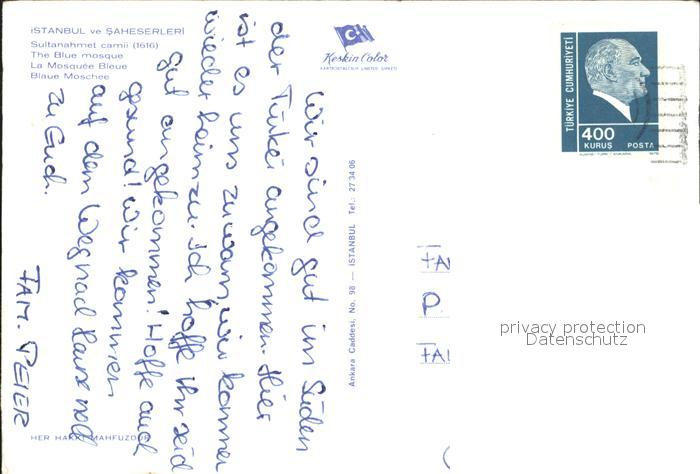 İSTANBUL ve ŞAHESERLERİ
Sultanahmet camii (1616)
The Blue mosque
La Mosquée Bleue
Blaue Moschee
Keskin Color
KARTPOSTALCILIK LIMITED ŞİRKETİ
TÜRKİYE CUMHURİYETİ
400
KURUŞ POSTA
Wir sind gut im Süden
der Türkei angekommen. Hier
ist es uns zu warm wir kommen
wieder heim zu. Ich hoffe Ihr seid
gut angekommen! Hoffe auch
gesund! Wir kommen
auf dem Weg nach Hause
zu Euch.
FAM. PETER
Ankara Caddesi, No. 98 — İSTANBUL Tel.: 27 34 06
FA
D
FA
privacy protection
Datenschutz
HER HAKKI MAHFUZDUR